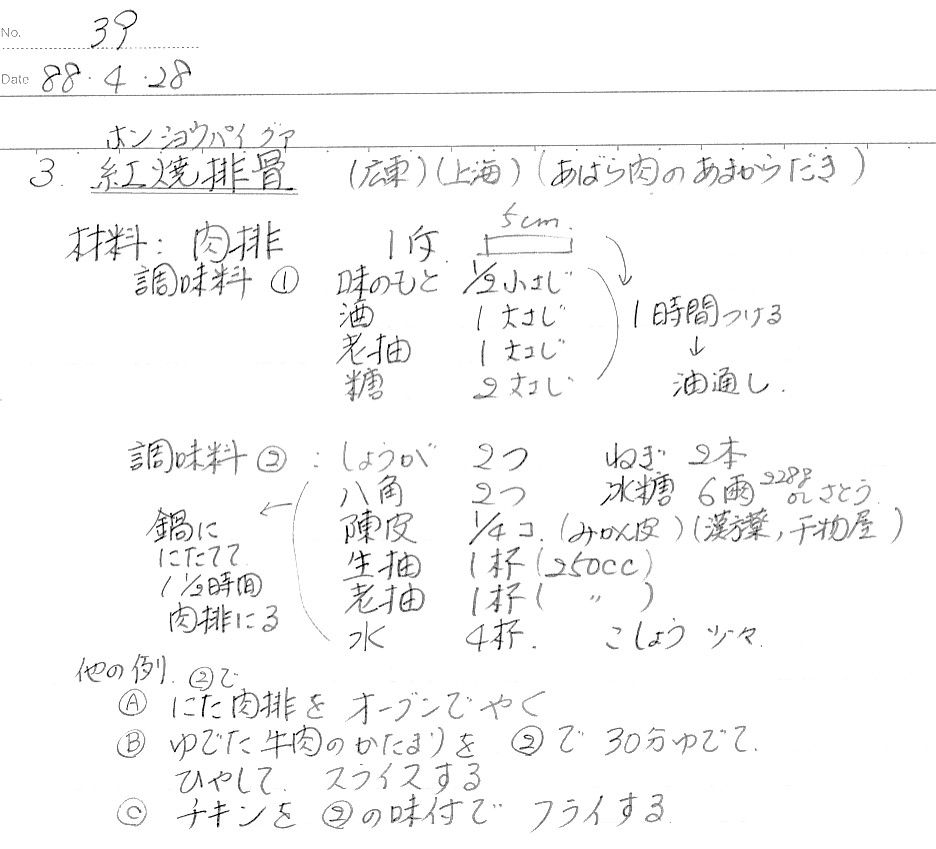 No. 39
Date 88・4・28
ホンショウパイグァ
3. 紅焼排骨 (広東)(上海)(あばら肉のあまからだき)
5cm
材料: 肉排 1斤
調味料 ① 味のもと 1/2小さじ
酒 1大さじ
老抽 1大さじ
糖 2大さじ
1時間つける
↓
油通し.
調味料 ② : しょうが 2つ ねぎ 2本
八角 2つ 氷糖 6両 228g or さとう
陳皮 1/4コ. (みかん皮)(漢方薬,干物屋)
生抽 1杯(250cc)
老抽 1杯( 〃 )
水 4杯. こしょう 少々.
鍋に
にたてて
1 1/2時間
肉排にる
他の例. ②で
Ⓐ にた肉排を オーブンでやく
Ⓑ ゆでた牛肉のかたまりを ②で 30分ゆでて.
ひやして. スライスする
Ⓒ チキンを ②の味付で フライする